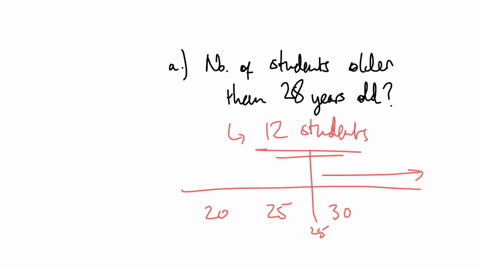 a.) No. of students older
than 28 years old?
↳ 12 students
20 25 30
28